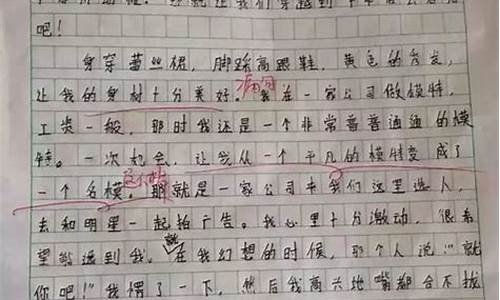 我们穿越到
吧！
身穿蕾丝裙，脚踩高跟鞋，黄色的秀发，
让我的身材十分美好。病句 我在一家公司做模特，
工资一般，那时我还是一个非常普普通通的模
特。一次机会，让我从一个平凡的模特变成了
一个名模。那就是一家公司来我们这里选人，
去和明星一起拍广告。我心里十分激动，很希
望能选到我。就在我幻想的时候，那个人说：“就
你吧！”我愣了一下，然后我高兴地嘴都合不拢